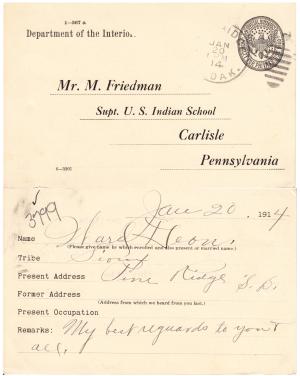 1—567 a
Department of the Interior.
JAN
20
14
DAK.
Mr. M. Friedman
Supt. U. S. Indian School
Carlisle
Pennsylvania
6—3301
3799
Jan 20, 1914
Name
(Please give name by which enrolled and also present or married name.)
Tribe Sioux
Present Address Pine Ridge S. D.
Former Address
(Address from which we heard from you last.)
Present Occupation
Remarks: My best reguards to you &
all.